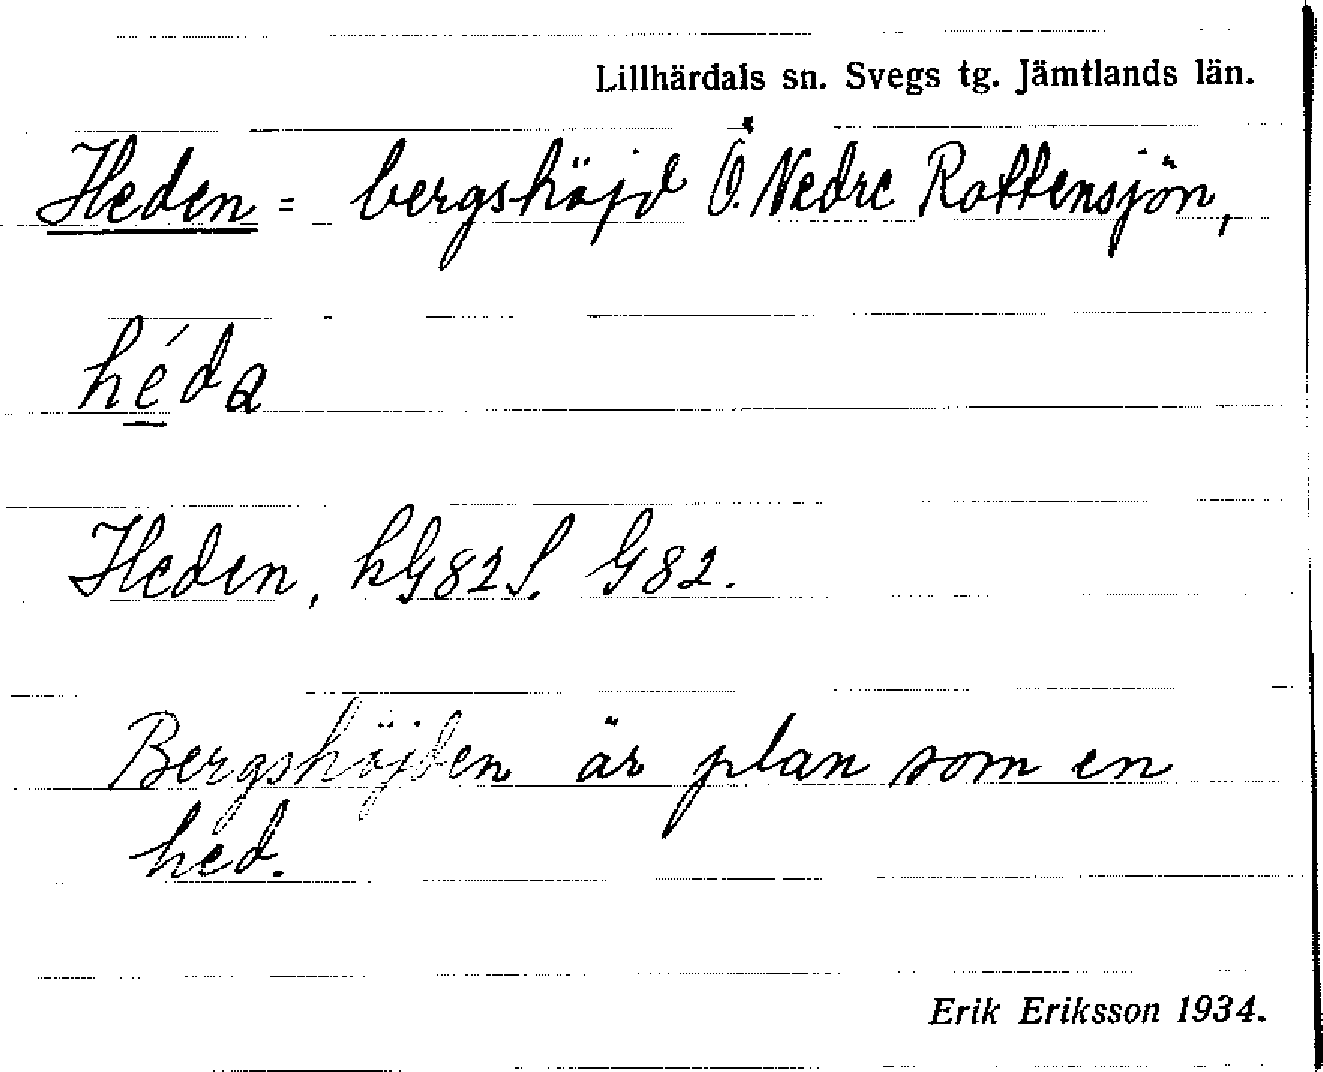 Lillhärdals sn. Svegs tg. Jämtlands län.
Heden = bergshöjd Ö. Nedre Rottensjön,
héda
Heden, kG82S. G82.
Bergshöjden är plan som en
hed.
Erik Eriksson 1934.